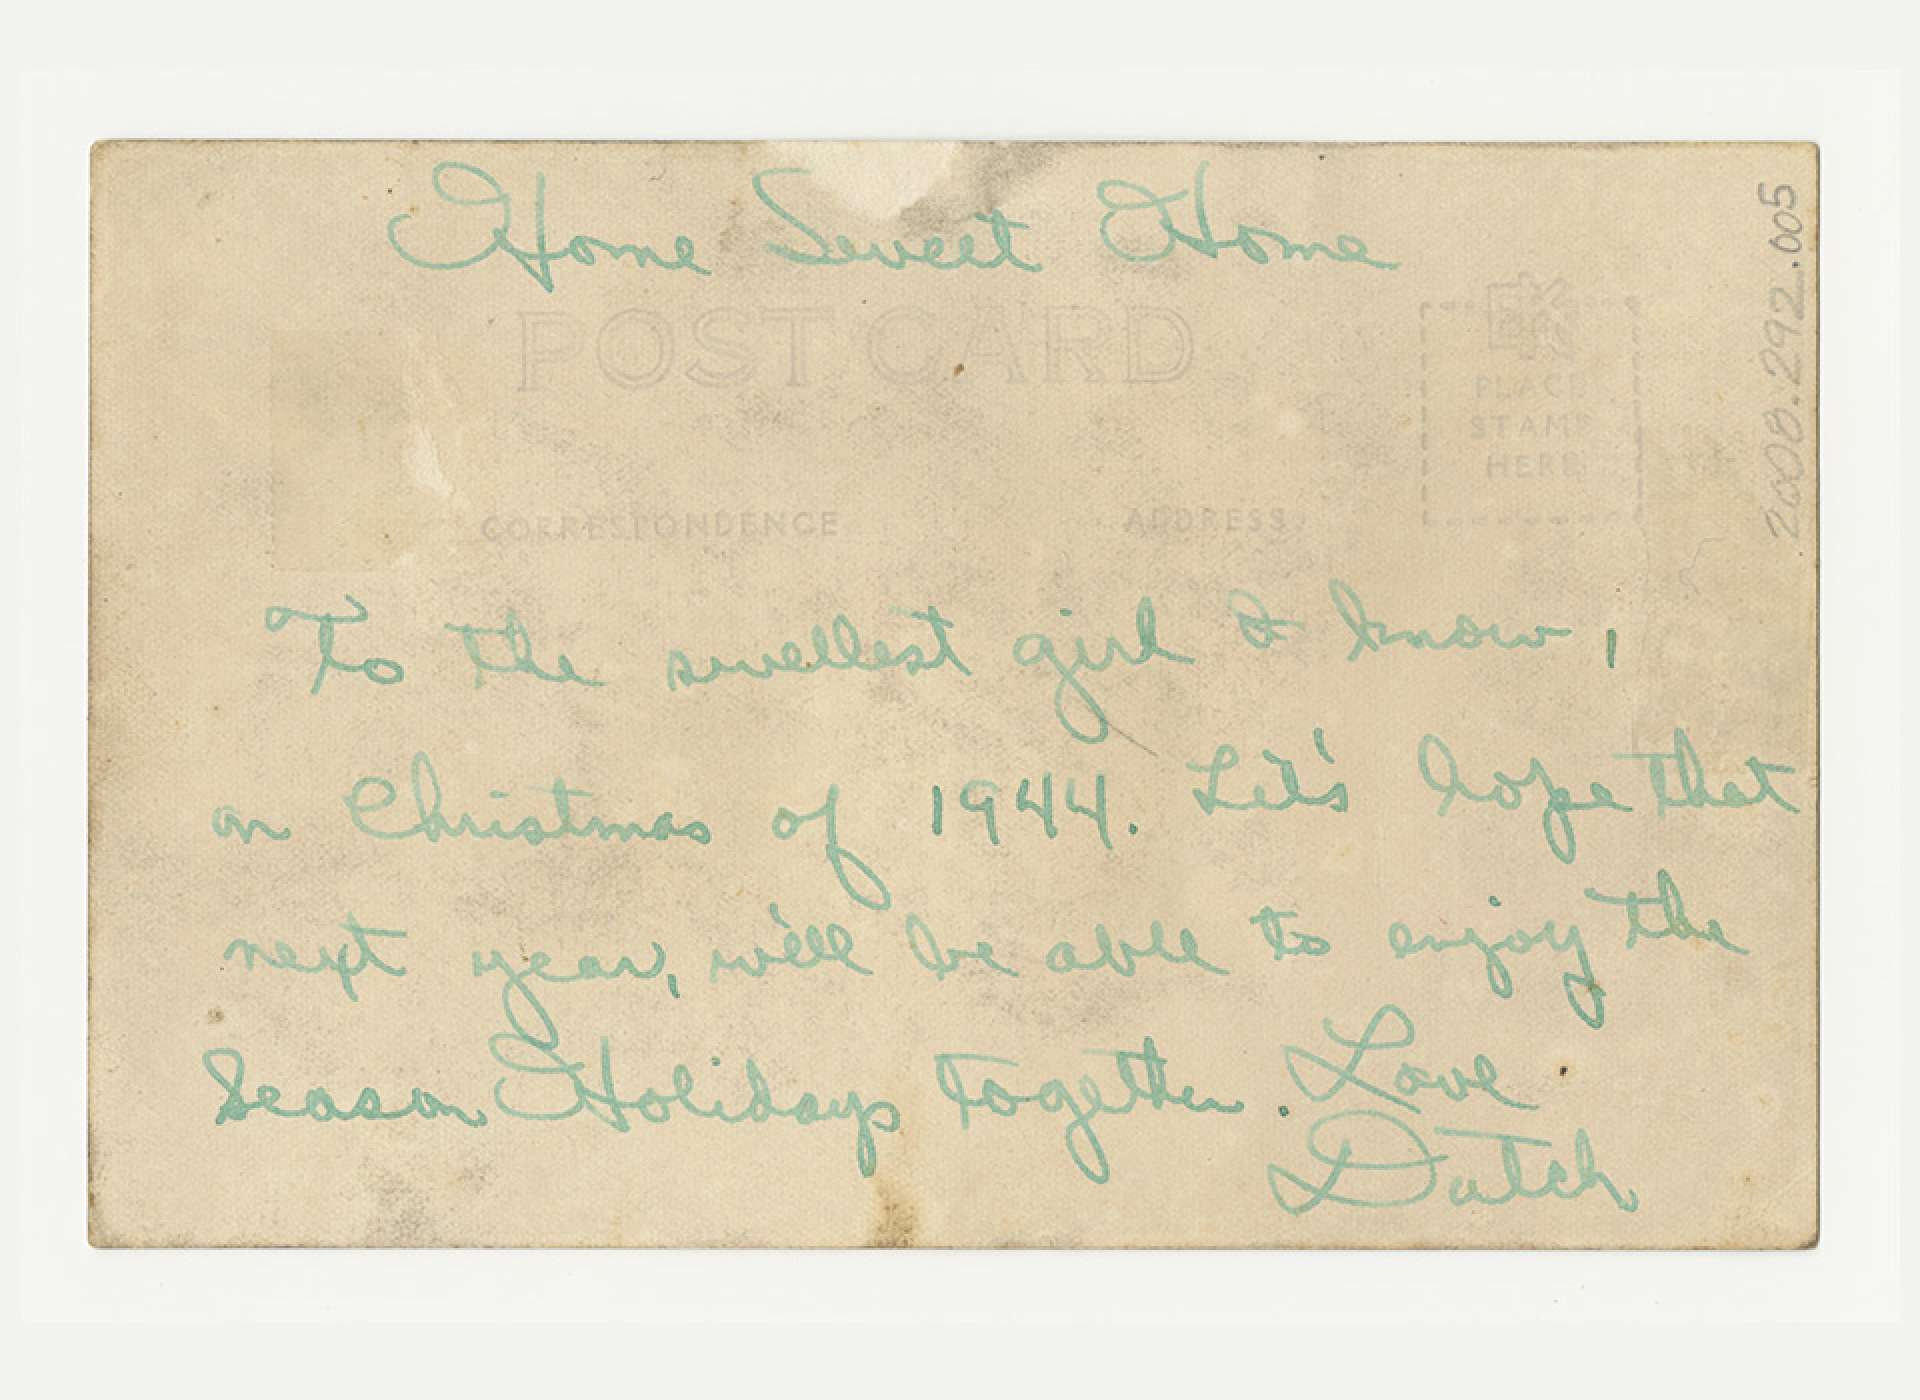 Home Sweet Home
POST CARD
EKC
PLACE
STAMP
HERE
2008.292.005
CORRESPONDENCE
ADDRESS
To the swellest girl I know,
on Christmas of 1944. Let's hope that
next year, we'll be able to enjoy the
Season Holidays together. Love
Dutch